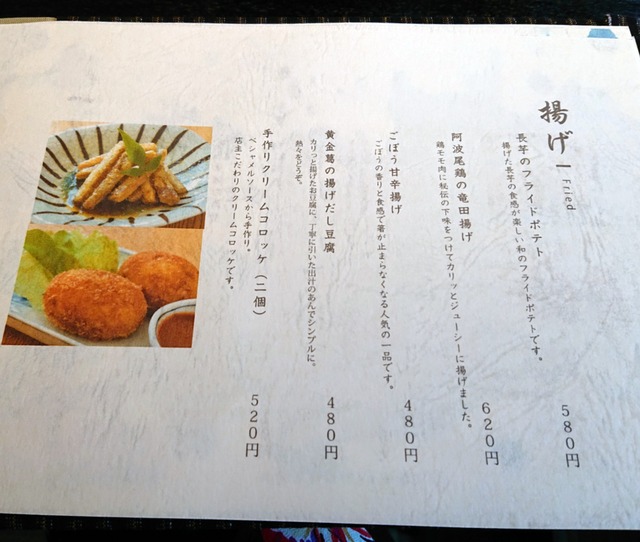 揚げ
Fried
長芋のフライドポテト
揚げた長芋の食感が楽しい和のフライドポテトです。
580円
阿波尾鶏の竜田揚げ
鶏モモ肉に秘伝の下味をつけてカリッとジューシーに揚げました。
620円
ごぼう甘辛揚げ
ごぼうの香りと食感で箸が止まらなくなる人気の一品です。
480円
黄金葛の揚げだし豆腐
カリっと揚げたお豆腐に、丁寧に引いた出汁のあんでシンプルに。
熱々をどうぞ。
480円
手作りクリームコロッケ(二個)
ベシャメルソースから手作り。
店主こだわりのクリームコロッケです。
520円